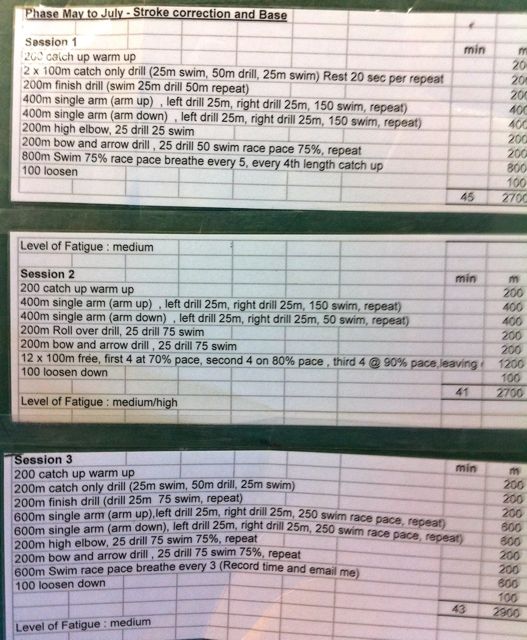 Phase May to July - Stroke correction and Base
Session 1 min m
200 catch up warm up 20
2 x 100m catch only drill (25m swim, 50m drill, 25m swim) Rest 20 sec per repeat 200
200m finish drill (swim 25m drill 50m repeat) 200
400m single arm (arm up) , left drill 25m, right drill 25m, 150 swim, repeat) 400
400m single arm (arm down) , left drill 25m, right drill 25m, 150 swim, repeat) 400
200m high elbow, 25 drill 25 swim 200
200m bow and arrow drill , 25 drill 50 swim race pace 75%, repeat 200
800m Swim 75% race pace breathe every 5, every 4th length catch up 800
100 loosen 100
45 2700
Level of Fatigue : medium
Session 2 min m
200 catch up warm up 200
400m single arm (arm up) , left drill 25m, right drill 25m, 150 swim, repeat) 400
400m single arm (arm down) , left drill 25m, right drill 25m, 50 swim, repeat) 400
200m Roll over drill, 25 drill 75 swim 200
200m bow and arrow drill , 25 drill 75 swim 200
12 x 100m free, first 4 at 70% pace, second 4 on 80% pace , third 4 @ 90% pace,leaving 1200
100 loosen down 100
41 2700
Level of Fatigue : medium/high
Session 3 min m
200 catch up warm up 200
200m catch only drill (25m swim, 50m drill, 25m swim) 200
200m finish drill (drill 25m 75 swim, repeat) 200
600m single arm (arm up),left drill 25m, right drill 25m, 250 swim race pace, repeat) 600
600m single arm (arm down), left drill 25m, right drill 25m, 250 swim race pace, repeat) 600
200m high elbow, 25 drill 75 swim 75%, repeat 200
200m bow and arrow drill , 25 drill 75 swim 75%, repeat 200
600m Swim race pace breathe every 3 (Record time and email me) 600
100 loosen down 100
43 2900
Level of Fatigue : medium